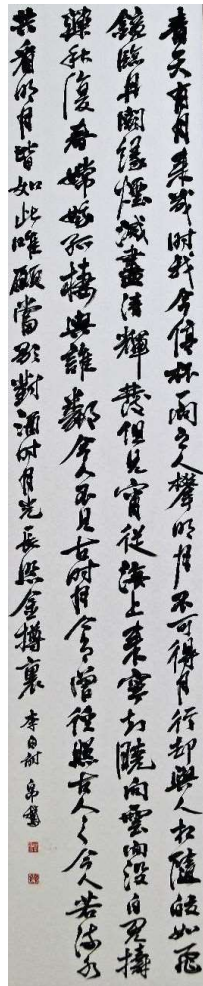 青天有月來幾時我今停杯問之人攀明月不可得月行却與人相隨皎如飛
鏡臨丹闕緑煙滅盡清輝發但見宵從海上來寧知曉向雲間没白兔擣
藥秋復春嫦娥孤棲與誰鄰今人不見古時月今月曾經照古人々今人若流水
共看明月皆如此唯願當歌對酒時月光長照金樽裏 李白詩